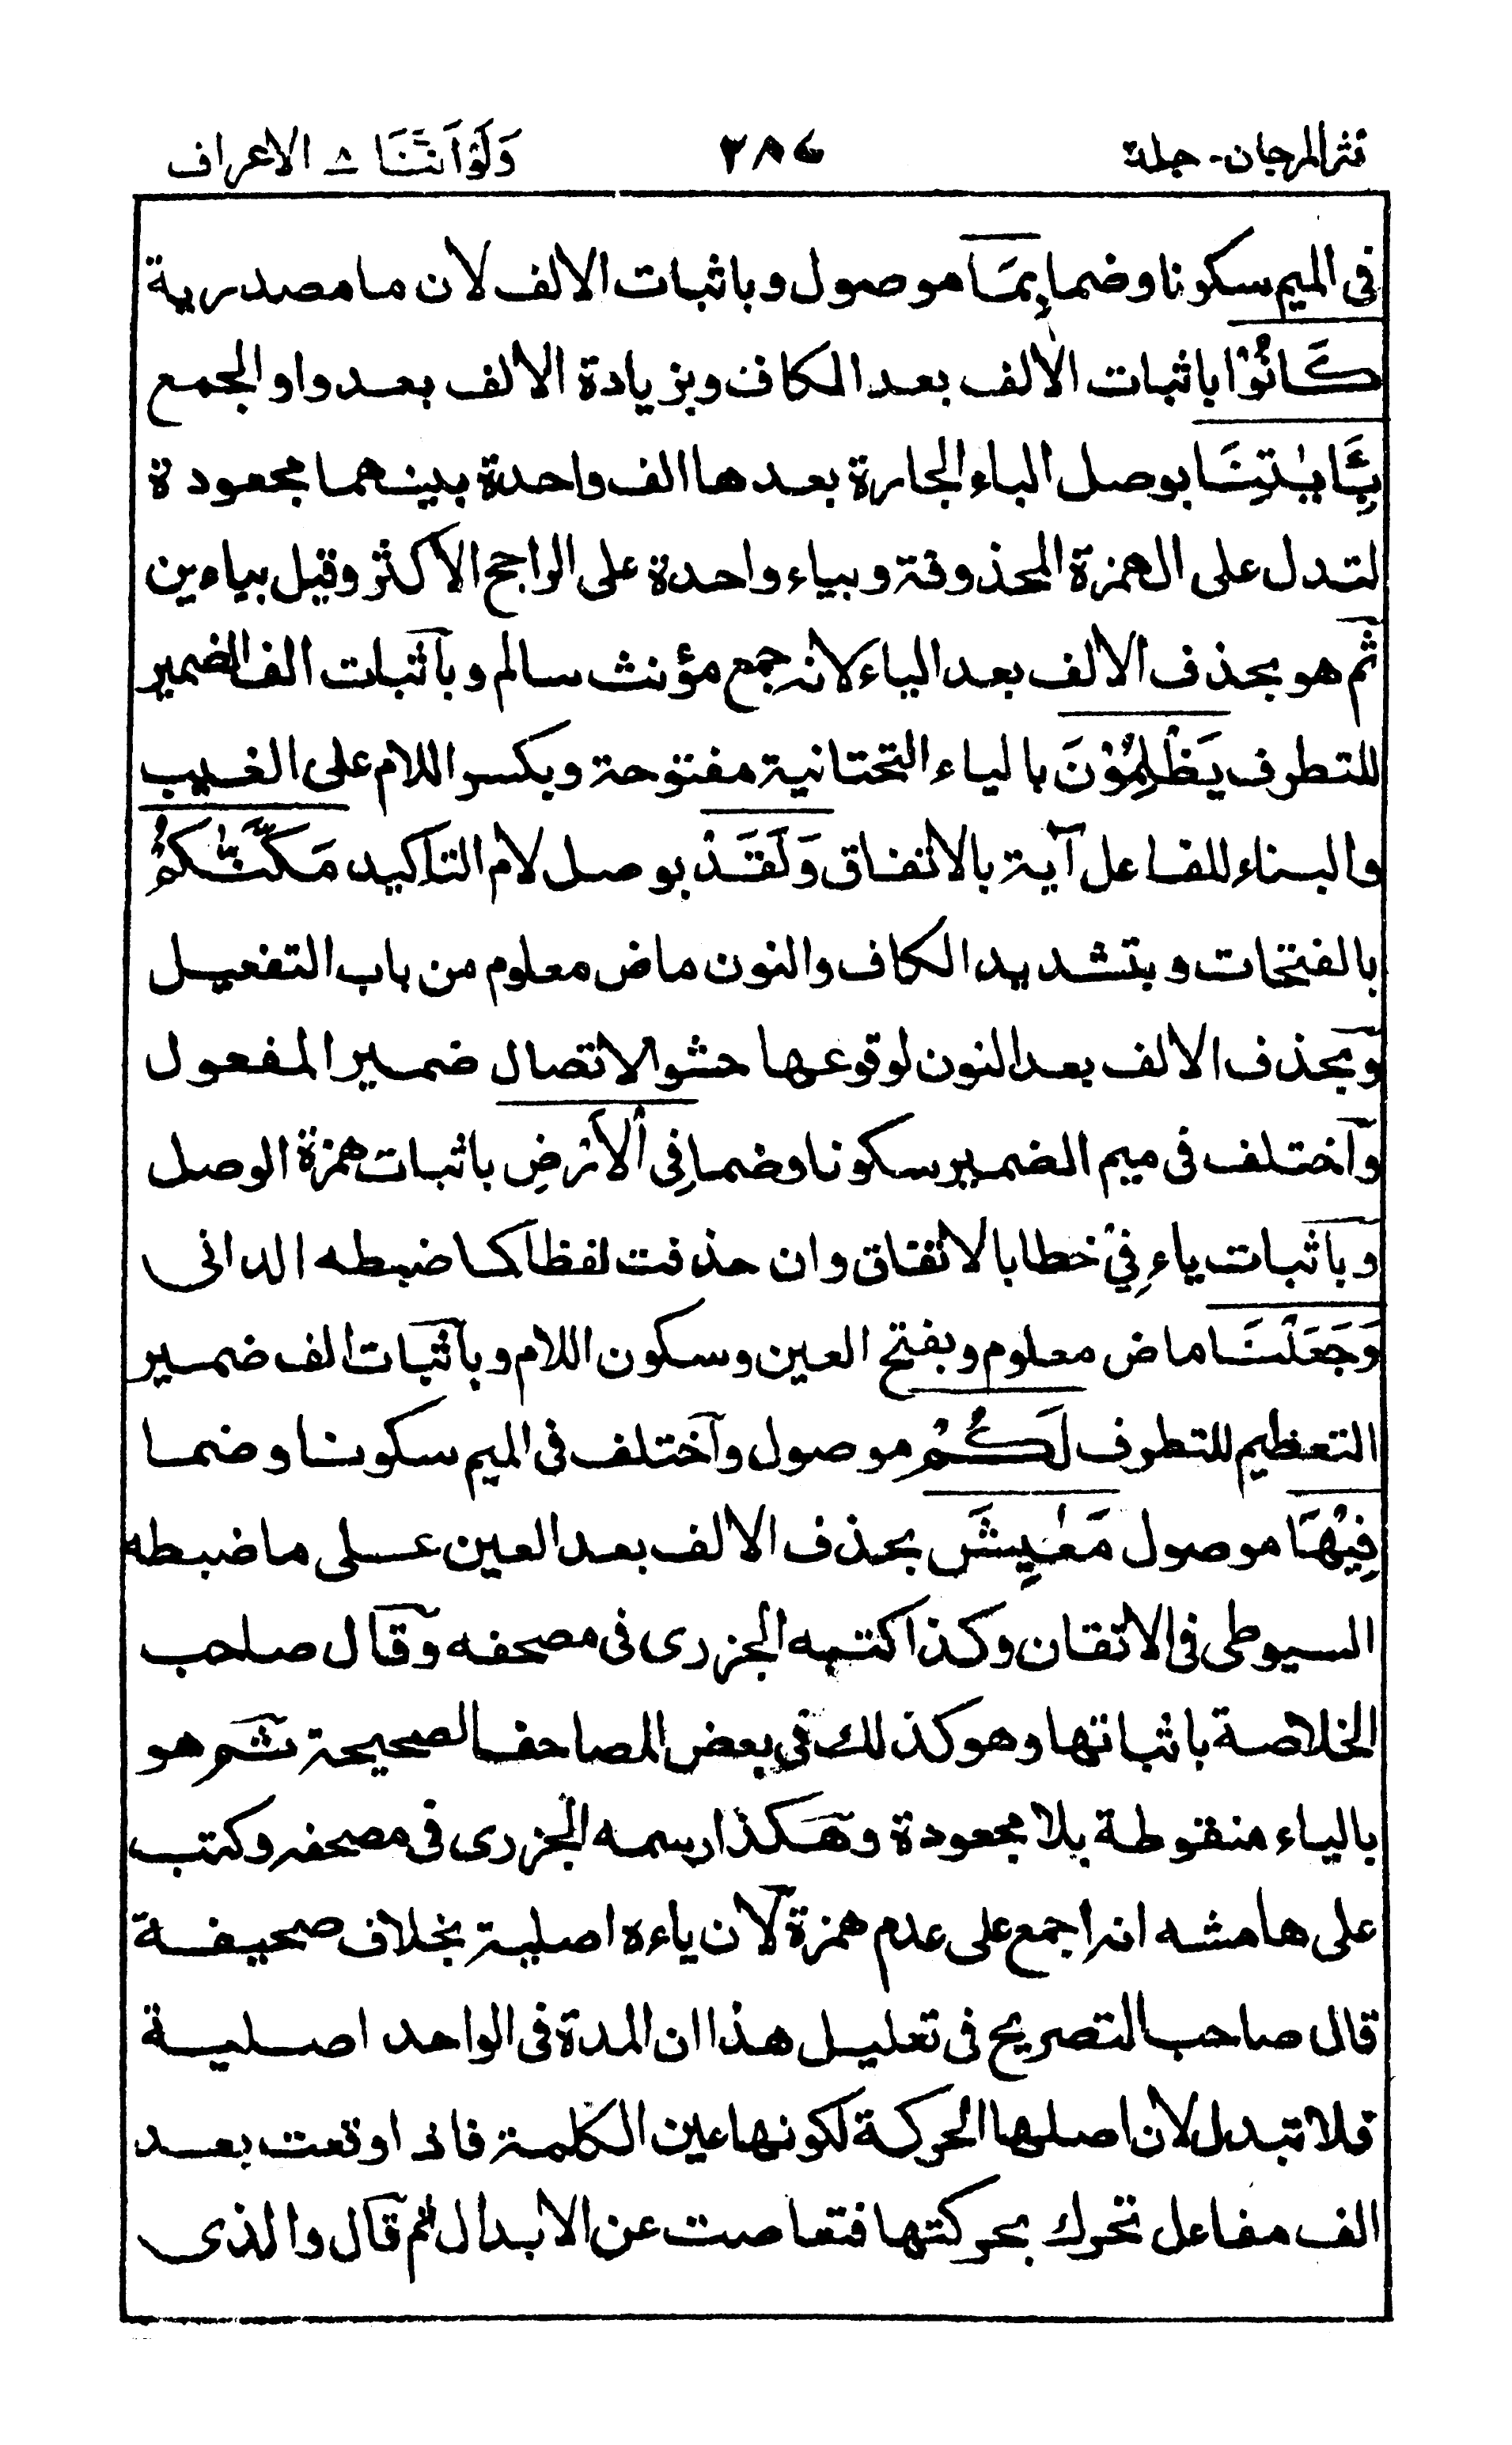 نثر المرجان - جلد ٢٨٤ وَلَوْ اَنَّنَا ٨ الاعراف
فى الميم سكونا وضما بِمَا موصول وباثبات الالف لان ما مصدرية
كَانُوْا باثبات الالف بعد الكاف وبزيادة الالف بعد واو الجمع
بِـَٔايٰتِنَا بوصل الباء الجارة بعدها الف واحدة بينهما مجعودة
لتدل على الهمزة المحذوفة وبياء واحدة على الراجح الاكثر وقيل بياءين
ثم هو بحذف الالف بعد الياء لانه جمع مؤنث سالم وباثبات الف الضمير
للتطرف يَظْلِمُوْنَ بالياء التحتانية مفتوحة وبكسر اللام على الغيب
والبناء للفاعل آية بالاتفاق وَلَقَدْ بوصل لام التاكيد مَكَّنّٰكُمْ
بالفتحات وبتشديد الكاف والنون ماض معلوم من باب التفعيل
وبحذف الالف بعد النون لوقوعها حشوا لاتصال ضمير المفعول
وآختلف فى ميم الضمير سكونا وضما فِى الْاَرْضِ باثبات همزة الوصل
وباثبات ياء فِيْ خطا بالاتفاق وان حذفت لفظا كما ضبطه الدانى
وَجَعَلْنَا ماض معلوم وبفتح العين وسكون اللام وباثبات الف ضمير
التعظيم للتطرف لَكُمْ موصول وآختلف فى الميم سكونا وضما
فِيْهَا موصول مَعٰيِشَ بحذف الالف بعد العين على ما ضبطه
السيوطى فى الاتقان وكذا كتبه الجزرى فى مصحفه وقال صاحب
الخلاصة باثباتها وهو كذلك فى بعض المصاحف الصحيحة ثم هو
بالياء منقوطة بلا مجعودة وهكذا رسمه الجزرى فى مصحفه وكتب
على هامشه انه اجمع على عدم همزة لان ياءه اصلية بخلاف صحيفة
قال صاحب التصريح فى تعليل هذا ان المدة فى الواحد اصلية
فلا تبدل لان اصلها الحركة لكونها عين الكلمة فاذا وقعت بعد
الف مفاعل تحرك بحركتها فتعاصت عن الابدال ثم قال والذى